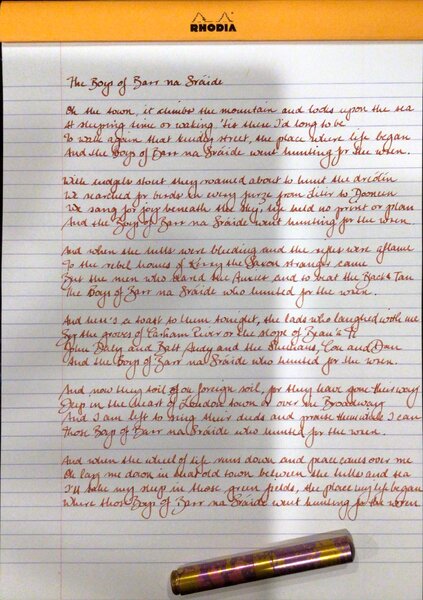 RHODIA
The Boys of Barr na Sráide
Oh the town, it climbs the mountain and looks upon the sea
At sleeping time or waking 'tis there I'd long to be
To walk again that kindly street, the place where life began
And the Boys of Barr na Sráide went hunting for the wren.
With cudgels stout they roamed about to hunt the dreólín
We searched for birds in every furze from Litir to Dooneen
We sang for joy beneath the sky, life held no print or plan
And the Boys of Barr na Sráide went hunting for the wren.
And when the hills were bleeding and the rifles were aflame
To the rebel homes of Kerry the Saxon stranger came
But the men who dared the Auxies and to beat the Black & Tan
The Boys of Barr na Sráide who hunted for the wren.
And here's a toast to them tonight, the lads who laughed with me
By the groves of Carham River or the slope of Bean 'a Tí
John Daly and Batt Andy and the Sheehans, Con and Dan
And the Boys of Barr na Sráide who hunted for the wren.
And now they toil on foreign soil, for they have gone their way
Deep in the heart of London town or over on Broadway
And I am left to sing their deeds and praise them while I can
Those Boys of Barr na Sráide who hunted for the wren.
And when the wheel of life runs down and peace comes over me
Oh lay me down in that old town between the hills and sea
I'll take my sleep in those green fields, the place my life began
Where those Boys of Barr na Sráide went hunting for the wren.